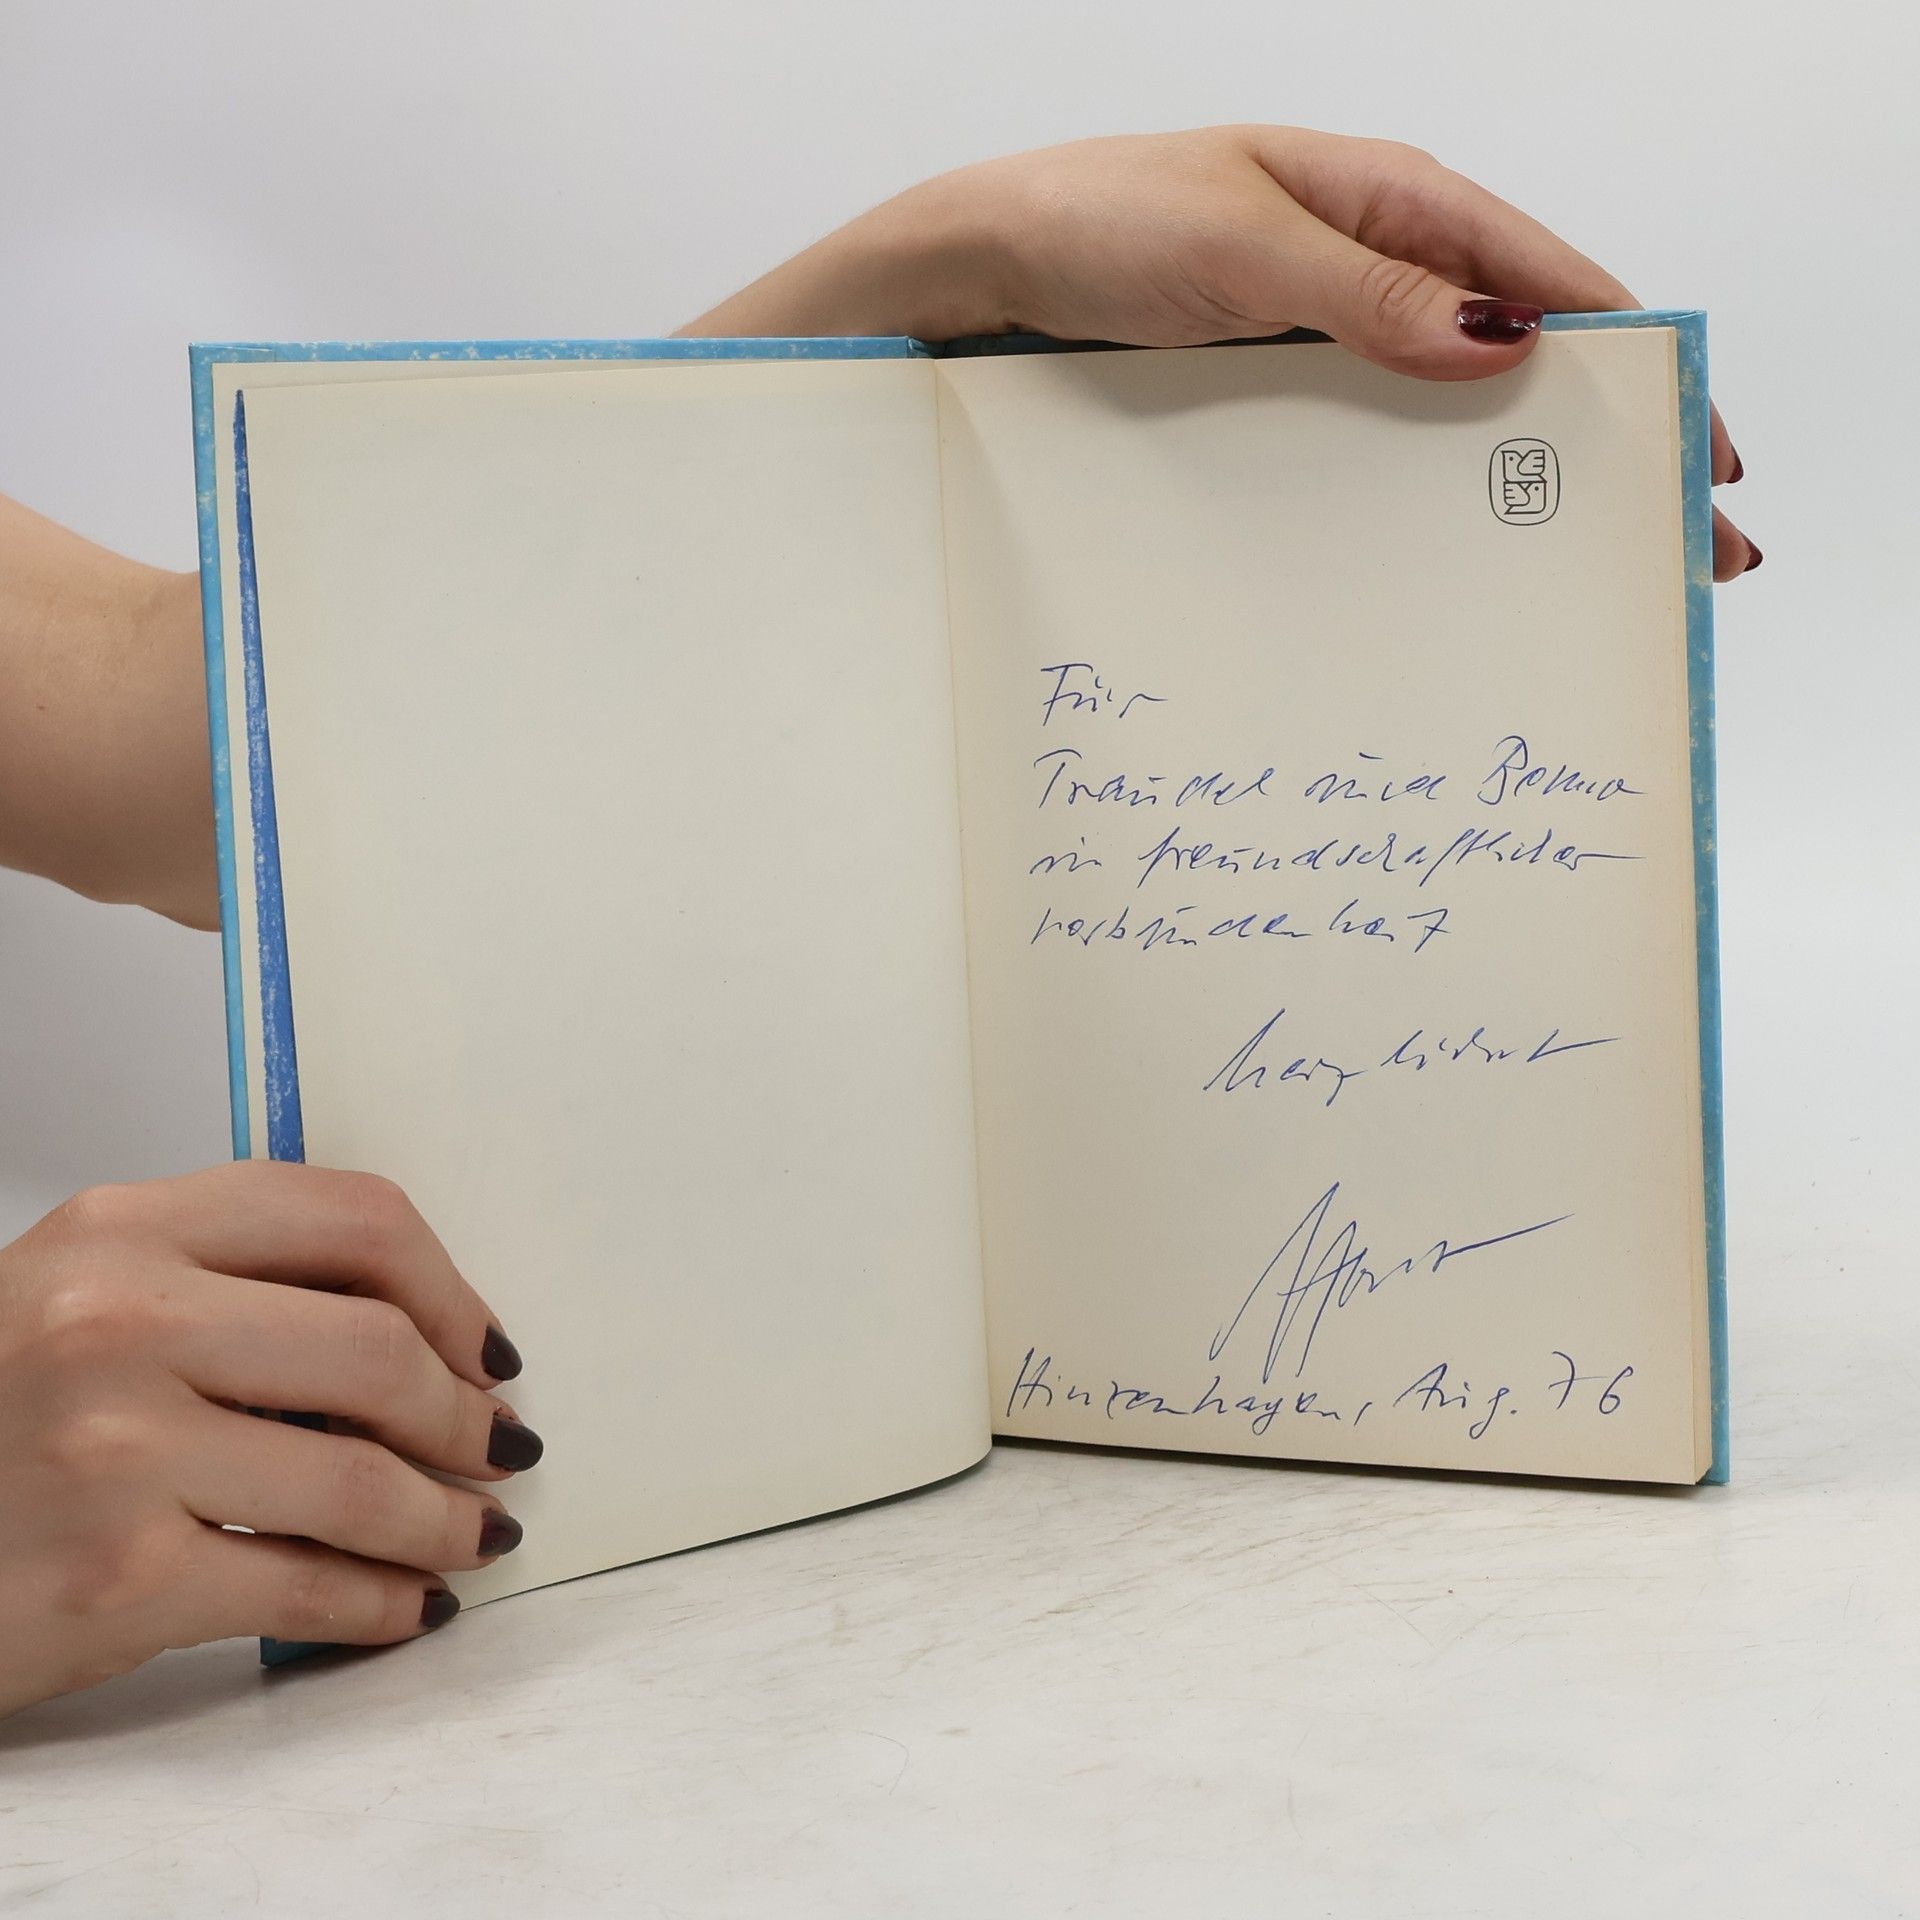 Für
Traudel und Benno
in freundschaftlicher
Verbundenheit
herzlichst
Horst
Hinzenhagen, Aug. 76